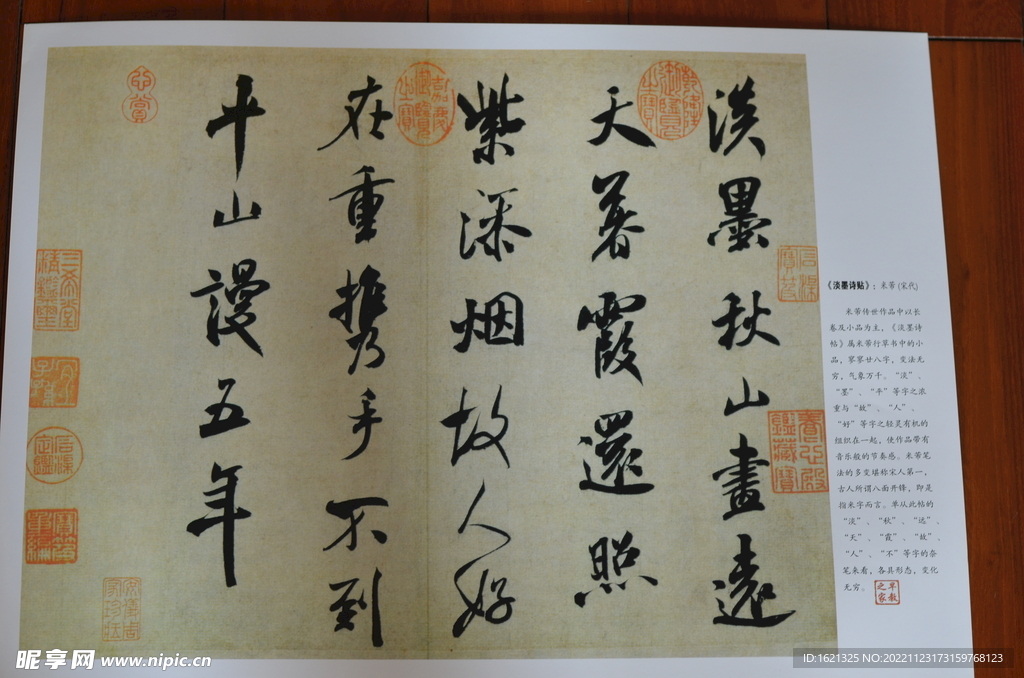 淡墨秋山畫遠
天暮霞還照
紫添烟故人好
在重攜手不到
平山漫五年
《淡墨诗贴》：米芾(宋代)
米芾传世作品中以长
卷及小品为主，《淡墨诗
帖》属米芾行草书中的小
品，寥寥廿八字，变法无
穷，气象万千。“淡”、
“墨”、“平”等字之浓
重与“故”、“人”、
“好”等字之轻灵有机的
组织在一起，使作品带有
音乐般的节奏感。米芾笔
法的多变堪称宋人第一，
古人所谓八面开锋，即是
指米字而言。单从此帖的
“淡”、“秋”、“远”、
“天”、“霞”、“故”、
“人”、“不”等字的杂
笔来看，各具形态，变化
无穷。
昵享网 www.nipic.cn
ID:1621325 NO:20221123173159768123